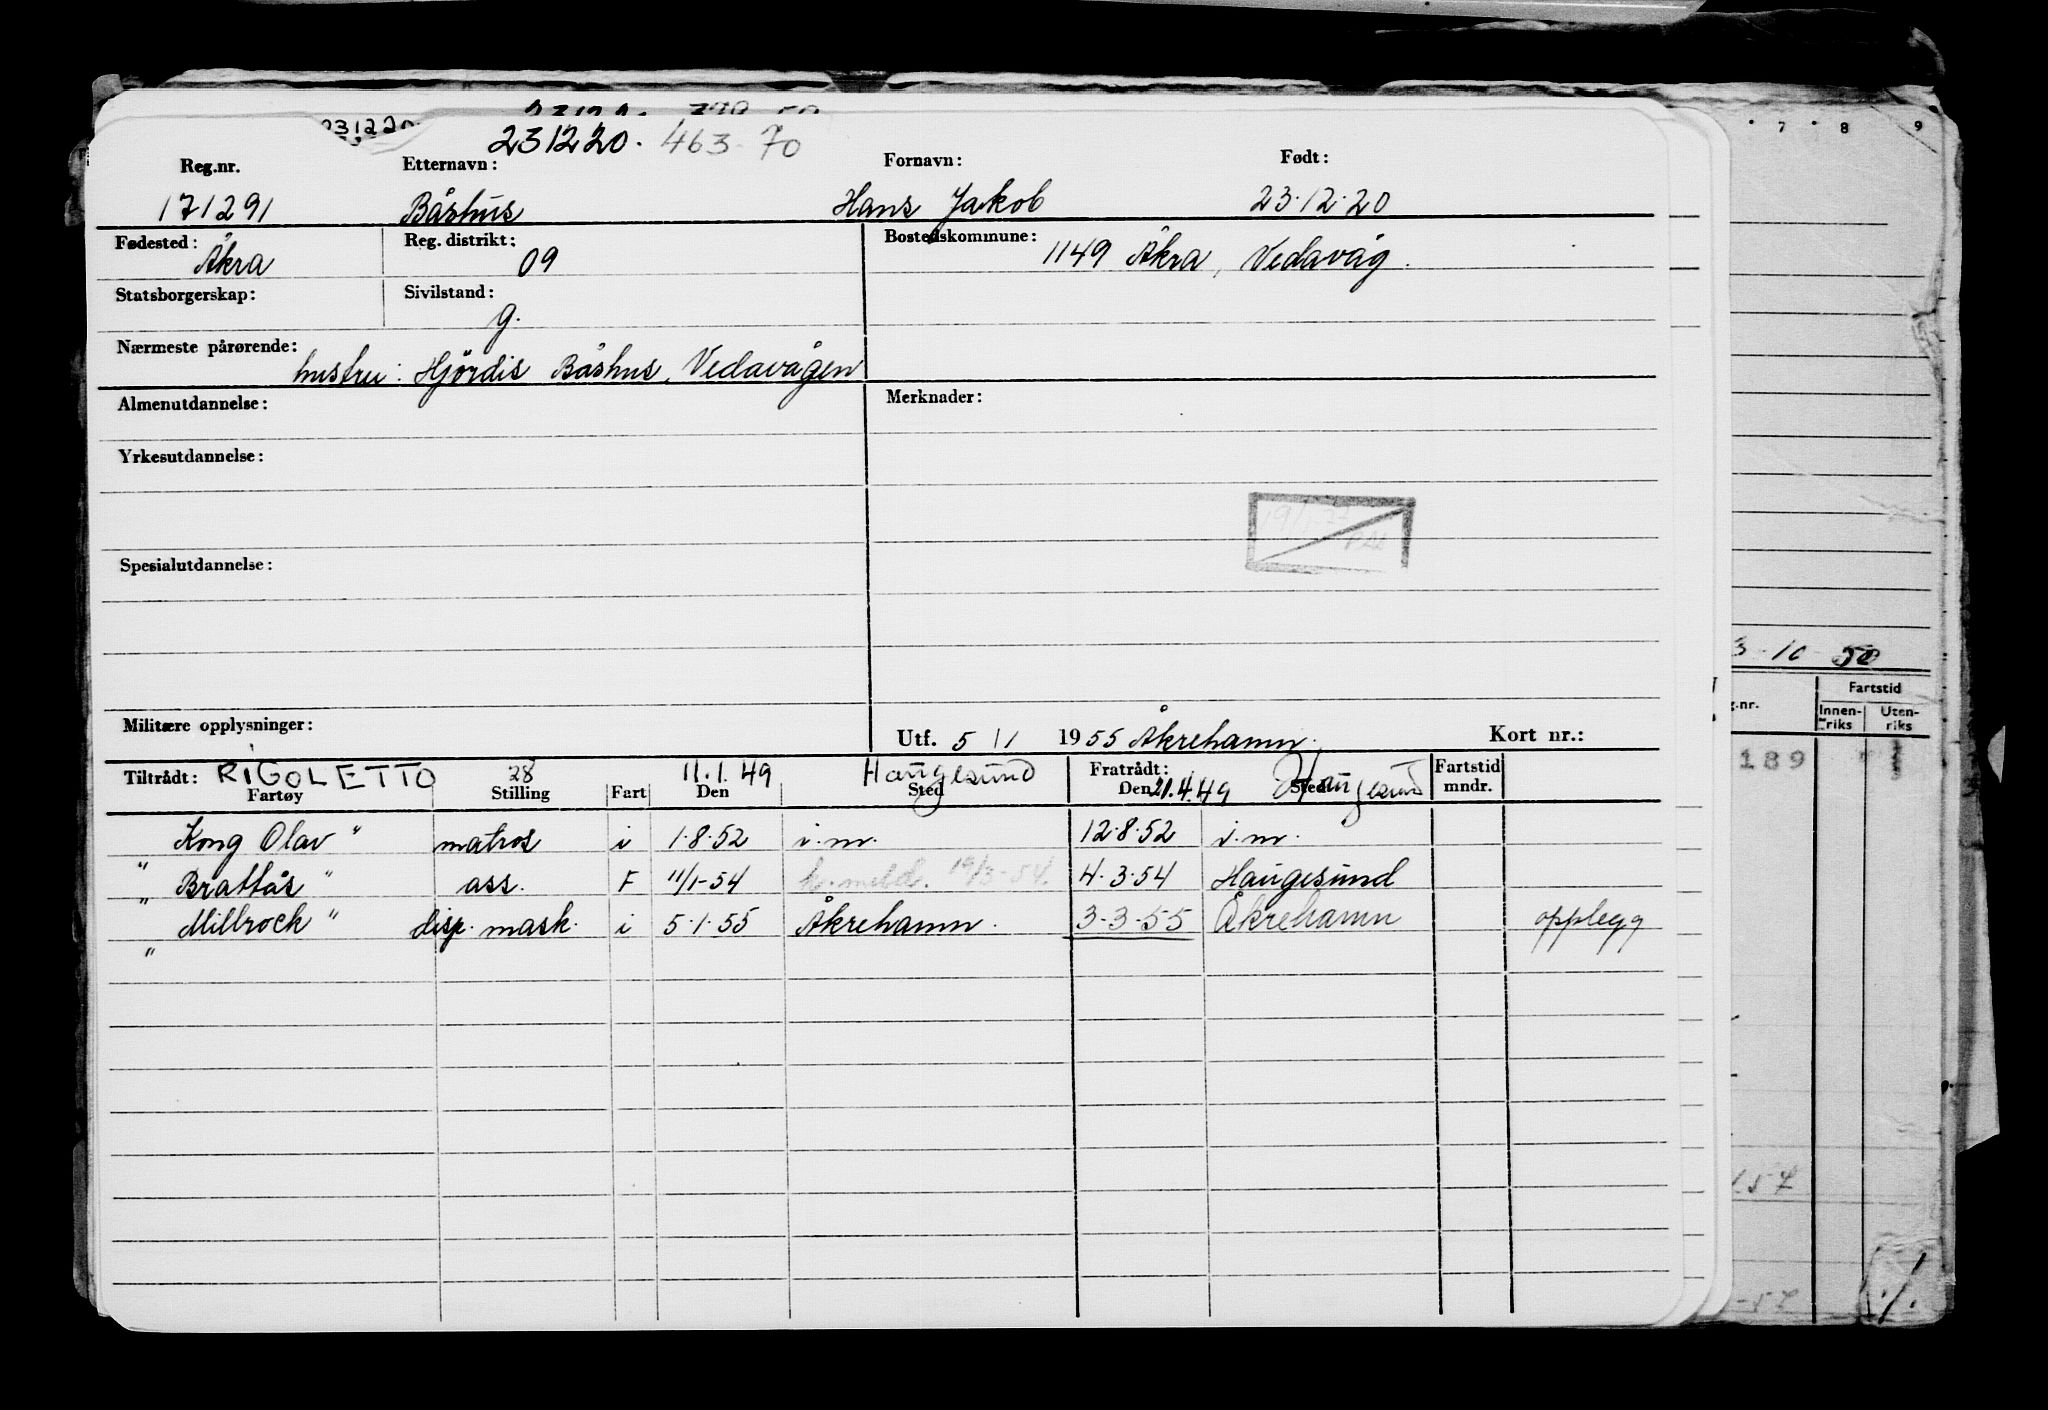 231220
231220. 463-70
Reg.nr. Etternavn: Fornavn: Født:
171291 Båshus Hans Jakob 23.12.20
Fødested: Reg. distrikt: Bostedskommune:
Åkra 09 1149 Åkra, Vedavåg.
Statsborgerskap: Sivilstand:
g.
Nærmeste pårørende:
hustru: Hjördis Båshus, Vedavågen
Almenutdannelse: Merknader:
Yrkesutdannelse:
Spesialutdannelse:
Militære opplysninger: Utf. 5/1 1955 Åkrehamn. Kort nr.:
Tiltrådt: RIGOLETTO 28 11.1.49 Haugesund Fratrådt: 21.4.49 Haugesund Fartstid
Fartøy Stilling Fart Den Sted Den Sted mndr.
Kong Olav" matros i 1.8.52 i.m. 12.8.52 i.m.
" Brattås" ass. F 11/1-54 k. meld. 19/3-54. 4.3.54 Haugesund
" Millrock" disp. mask. i 5.1.55 Åkrehamn. 3-3-55 Åkrehamn opplegg
"
7 8 9
3-10-50
g.nr. Fartstid
Innenriks Utenriks
189
57
-57